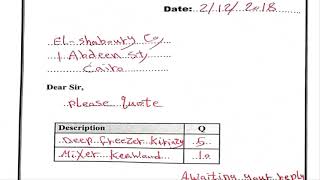 Date: 2/12/2018
El-shaboury Co,
1 Abdeen St,
Cairo
Dear Sir,
please quote
Description Q
Deep freezer Kiriazy 5
Mixer Kenwood 10
Awaiting your reply